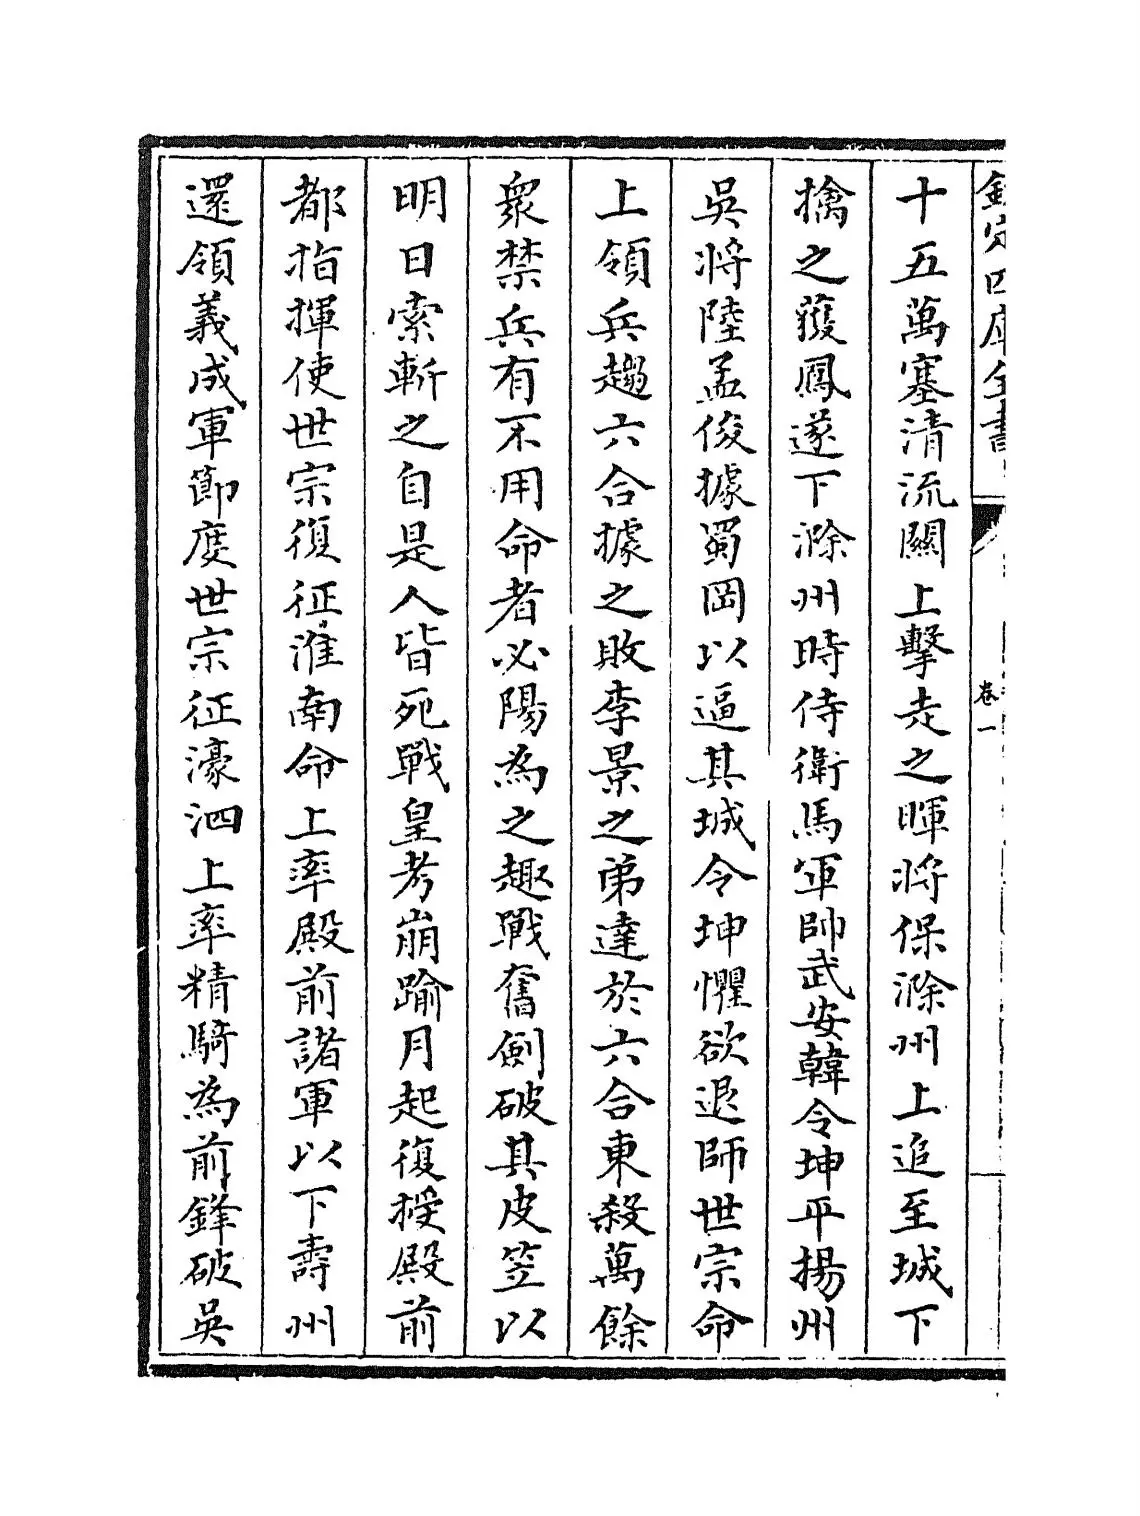 欽定四庫全書
卷一
十五萬塞清流關上擊走之暉將保滁州上追至城下
擒之獲鳳遂下滁州時侍衛馬軍帥武安韓令坤平揚州
吳將陸孟俊據蜀岡以逼其城令坤懼欲退師世宗命
上領兵趨六合據之敗李景之弟達於六合東殺萬餘
衆禁兵有不用命者必陽為之趣戰奮劍破其皮笠以
明日索斬之自是人皆死戰皇考崩踰月起復授殿前
都指揮使世宗復征淮南命上率殿前諸軍以下壽州
還領義成軍節度世宗征濠泗上率精騎為前鋒破吳